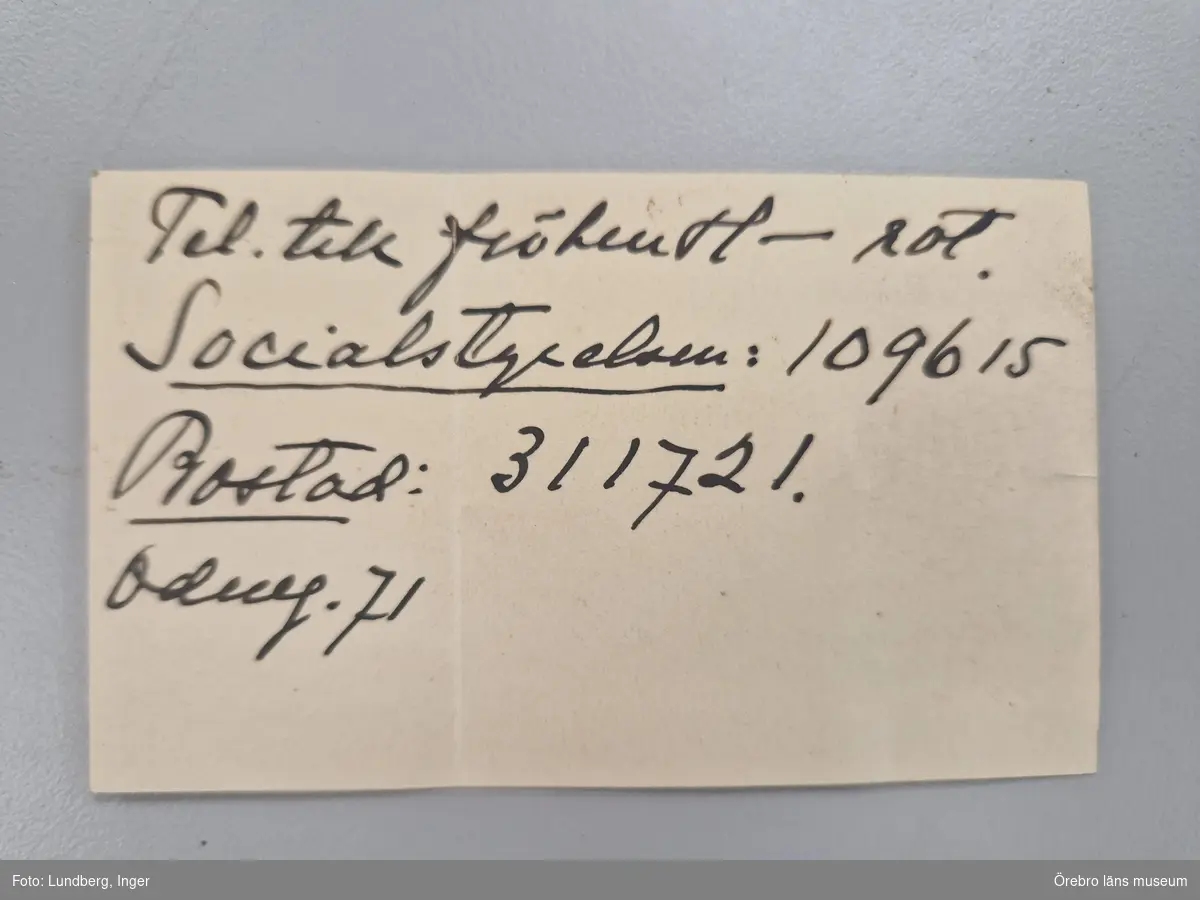 Tel. till fröken H — rot.
Socialstyrelsen: 109615
Bostad: 311721.
Odeng. 71
Foto: Lundberg, Inger
Örebro läns museum